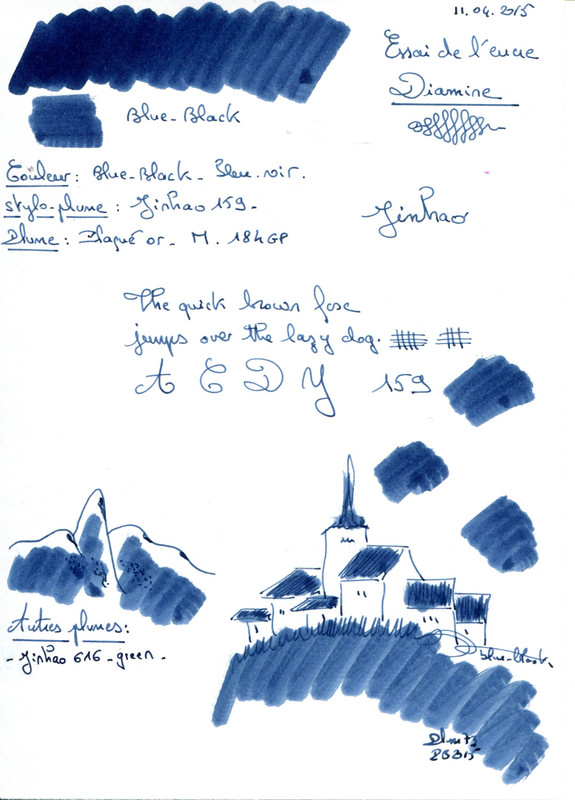 11.04.2015
Essai de l'encre
Diamine
Blue-Black
Couleur : Blue-Black - Bleu.noir.
stylo-plume : Jinhao 159 -
Plume : Plaqué or - M. 18KGP
Jinhao
The quick brown fose
jumps over the lazy dog.
A E D Y 159
Autres plumes :
- Jinhao 616 - green -
blue-black.